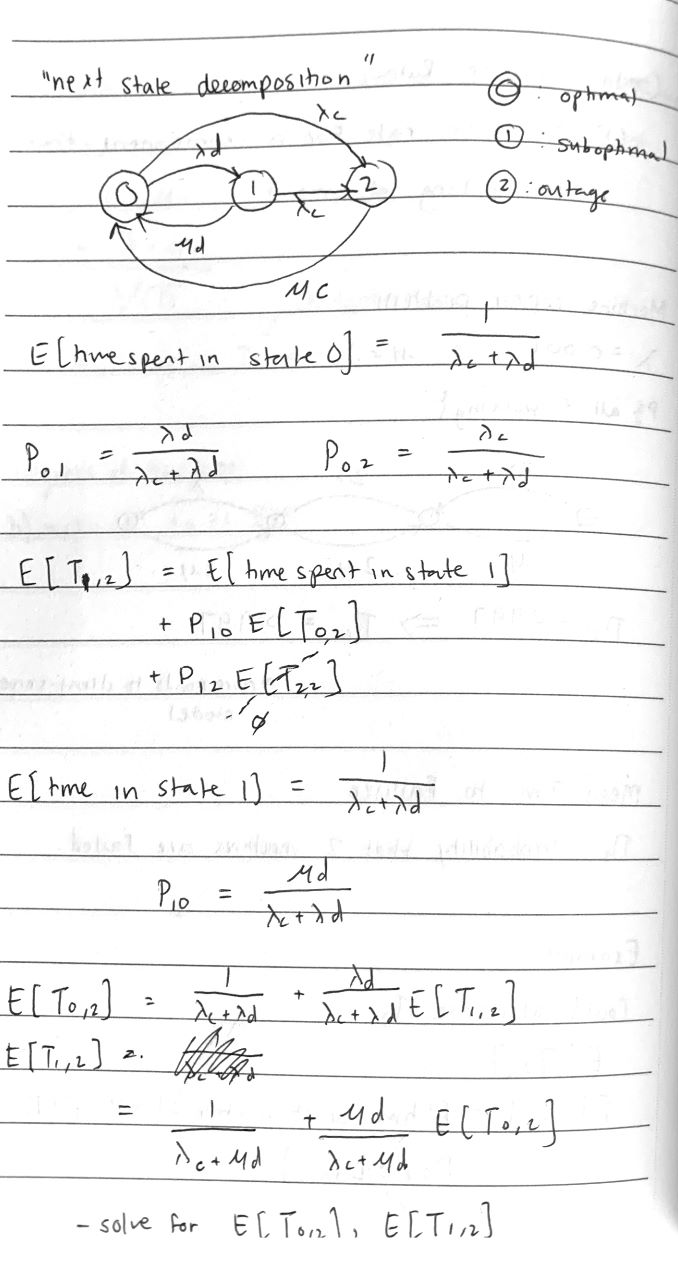 "next state decomposition"
⓪ : optimal
① : suboptimal
② : outage
λc
λd
0 1 2
λc
μd
μc
E[time spent in state 0] = 1/(λc + λd)
P01 = λd/(λc + λd) P02 = λc/(λc + λd)
E[T1,2] = E[time spent in state 1]
+ P10 E[T0,2]
+ P12 E[T2,2]
∅
E[time in state 1] = 1/(λc + λd)
P10 = μd/(λc + λd)
E[T0,2] = 1/(λc + λd) + λd/(λc + λd) E[T1,2]
E[T1,2] =
= 1/(λc + μd) + μd/(λc + μd) E[T0,2]
- solve for E[T0,2], E[T1,2]